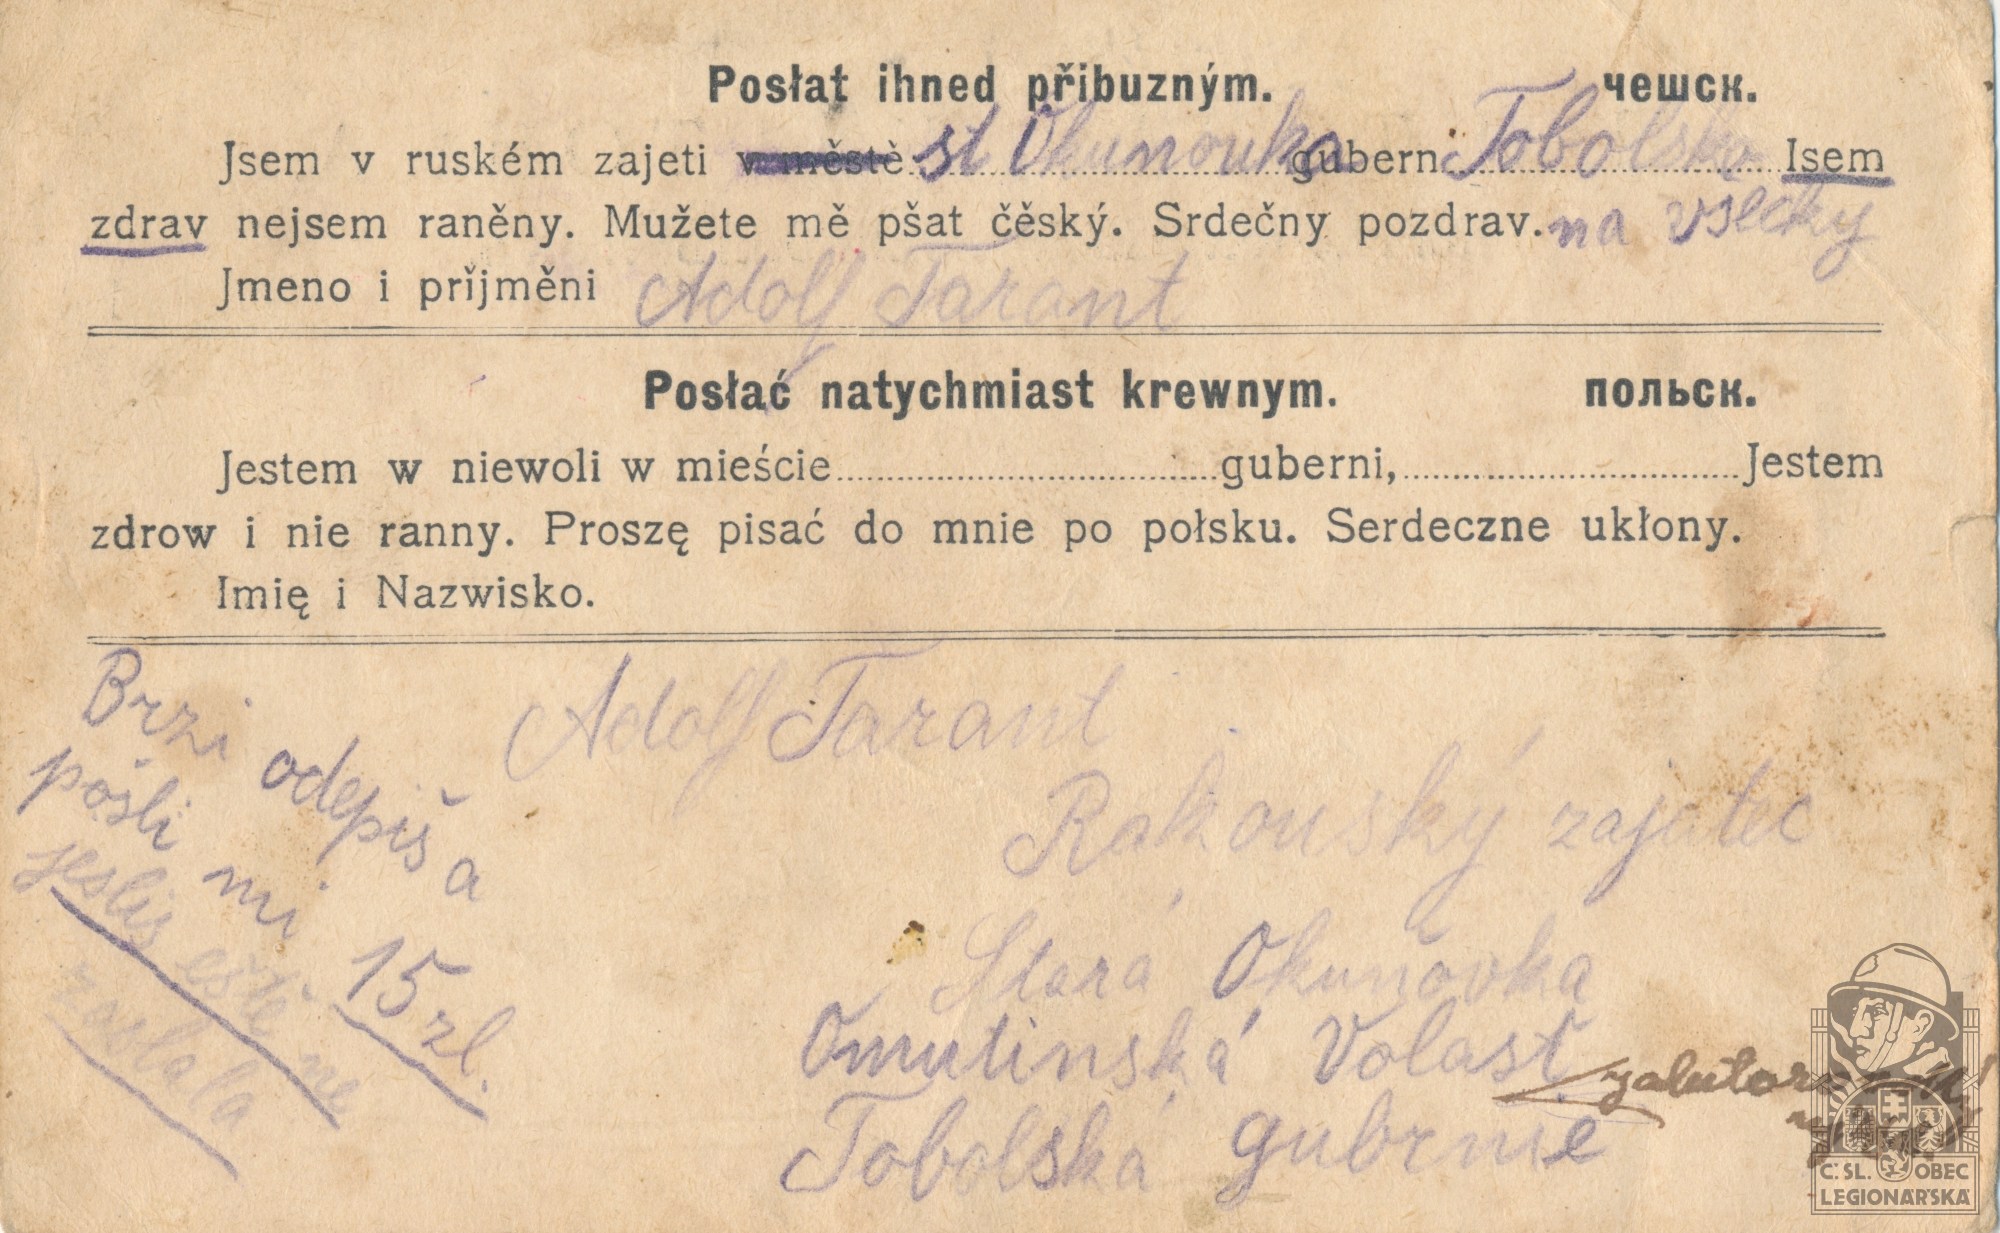 Posłat ihned přibuzným. чешск.
Jsem v ruském zajeti v městě st Okunouka guberni Tobolska Isem
zdrav nejsem raněny. Mužete mě pšat čěský. Srdečny pozdrav. na všecky
Jmeno i prijměni Adolf Tarant
Posłać natychmiast krewnym. польск.
Jestem w niewoli w mieście guberni, Jestem
zdrow i nie ranny. Proszę pisać do mnie po połsku. Serdeczne ukłony.
Imię i Nazwisko.
Brzi odepiš a
pošli mi 15 zl.
jeslis eště ne
zaslala
Adolf Tarant
Rakouský zajatec
Stará Okunovka
Omutinská Volast
Tobolská gubrnie
Č. SL. OBEC
LEGIONÁŘSKÁ